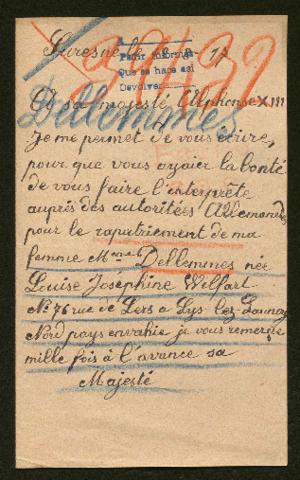 Suresne le 12-8-17
Para informe
Que se hace así
Devolver
A sa majesté Alphonse XIII
Dellemmes
Je me permet de vous écrire,
pour que vous ayaier la bonté
de vous faire l'interprète
auprés des autoritées Allemandes
pour le rapatriement de ma
femme Mme Dellemmes née
Louise Joséphine Welfart
No 76 rue de Lers a Lys lez-Lannoy
Nord pays envahie je vous remercie
mille fois à l'avance sa
Majesté